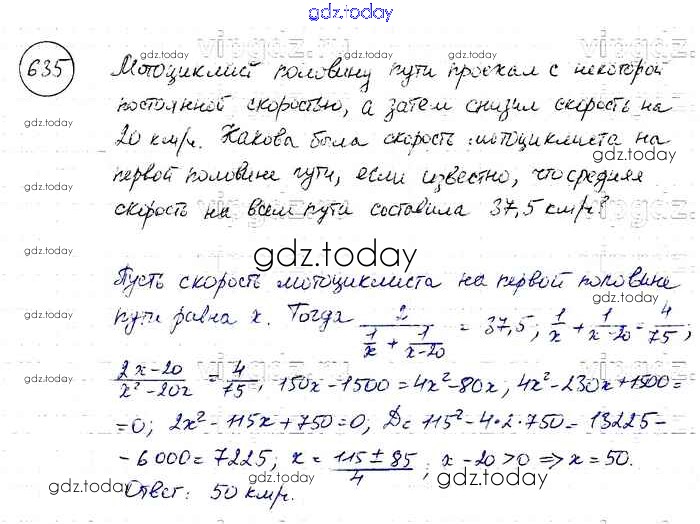 gdz.today
635 Мотоциклист половину пути проехал с некоторой
постоянной скоростью, а затем снизил скорость на
20 км/ч. Какова была скорость мотоциклиста на
первой половине пути, если известно, что средняя
скорость на всем пути составила 37,5 км/ч?
gdz.today
Пусть скорость мотоциклиста на первой половине
пути равна x. Тогда 2/(1/x + 1/(x-20)) = 37,5; 1/x + 1/(x-20) = 4/75;
(2x-20)/(x²-20x) = 4/75, 150x-1500=4x²-80x, 4x²-230x+1500=
=0; 2x²-115x+750=0, D=115²-4·2·750=13225-
-6000=7225; x = (115±85)/4; x-20>0 ⇒ x=50.
Ответ: 50 км/ч.
gdz.today